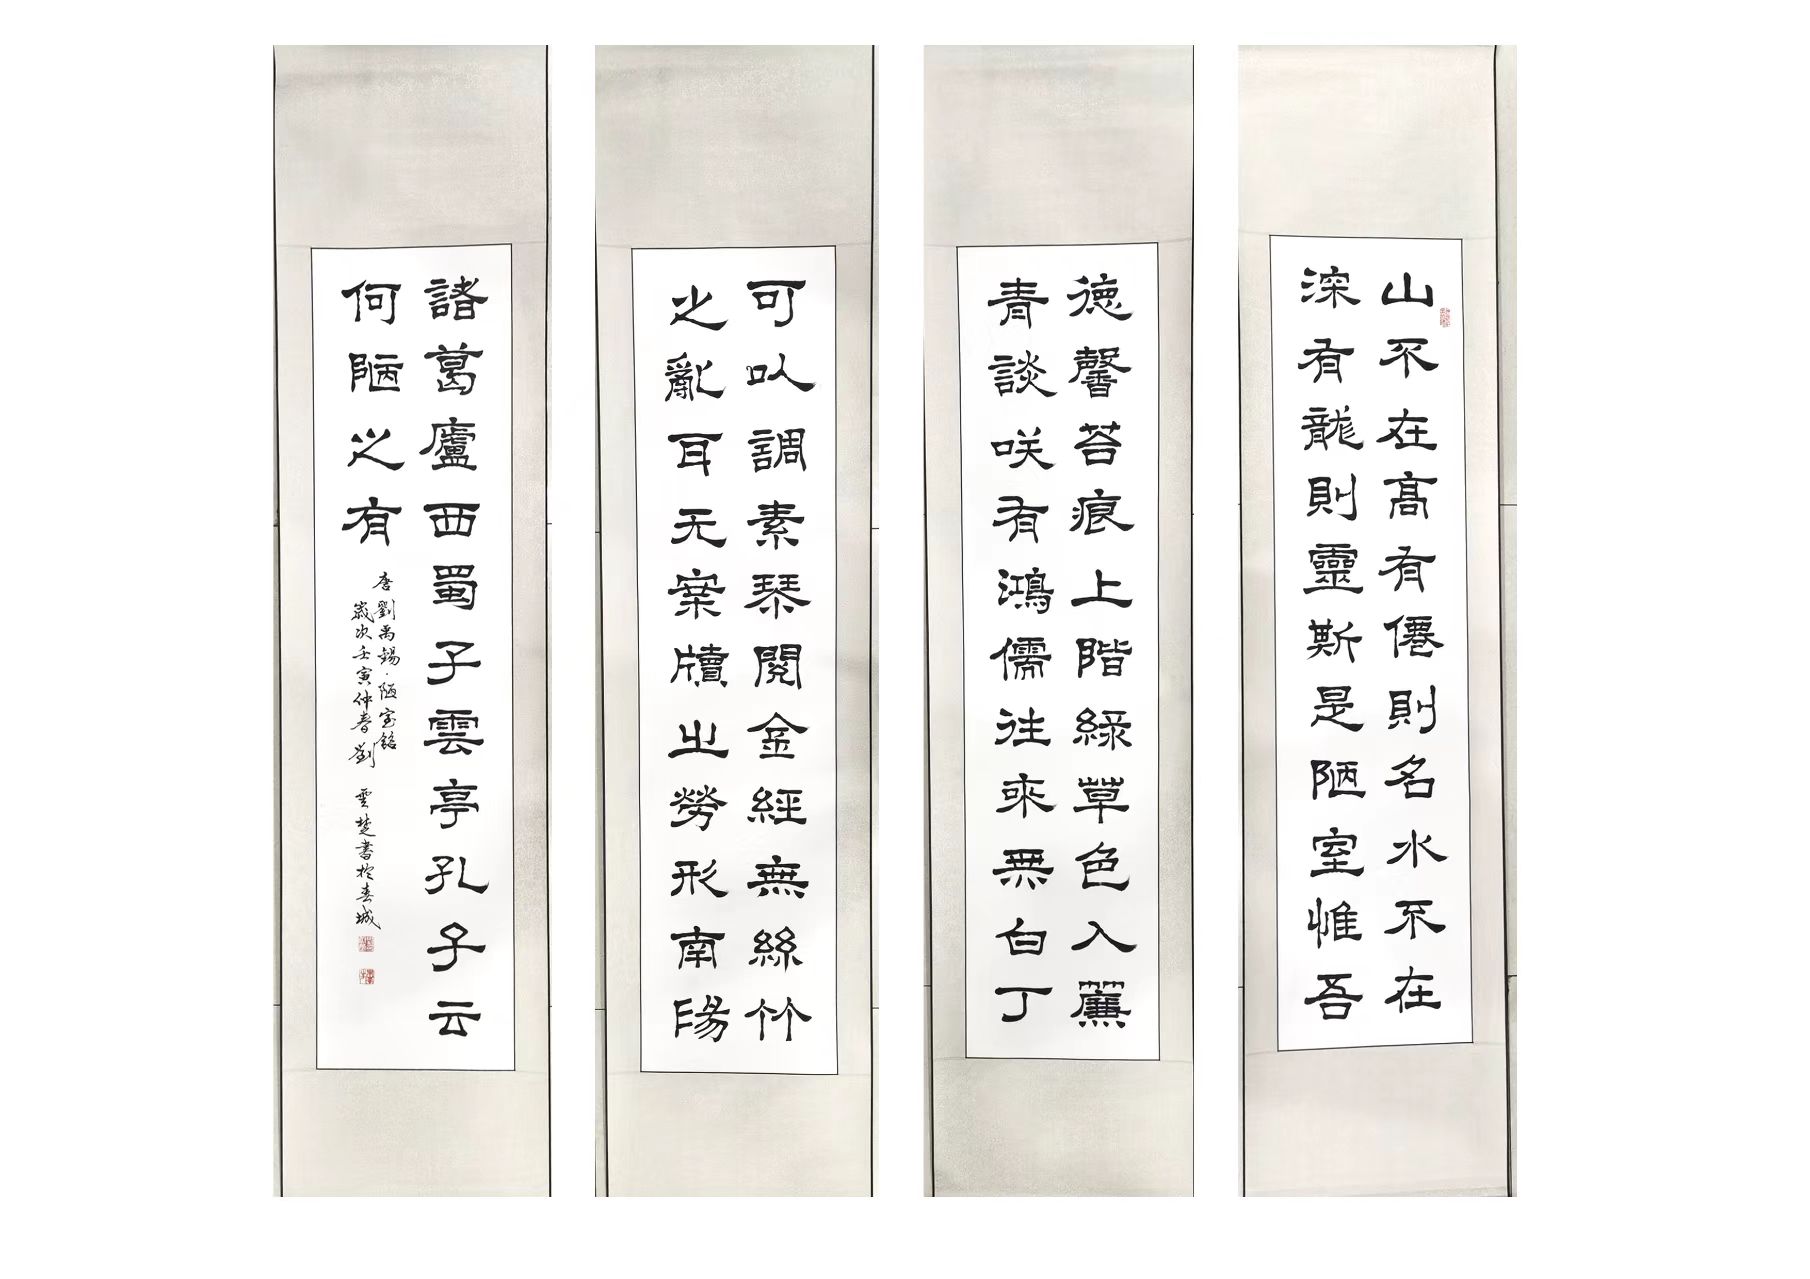 山不在高有僊則名水不在
深有龍則靈斯是陋室惟吾
德馨苔痕上階綠草色入簾
青談咲有鴻儒往來無白丁
可以調素琴閱金經無絲竹
之亂耳无案牘之勞形南陽
諸葛廬西蜀子雲亭孔子云
何陋之有
唐劉禹錫·陋室銘
歲次壬寅仲春劉雲楚書於春城